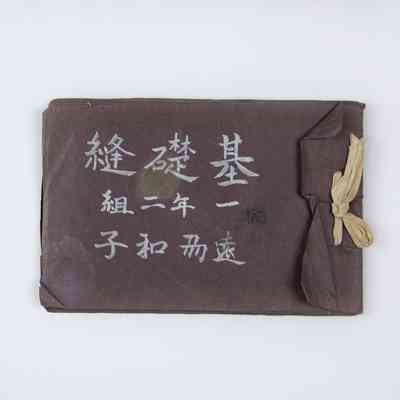 基礎縫
一年二組
遠 和子